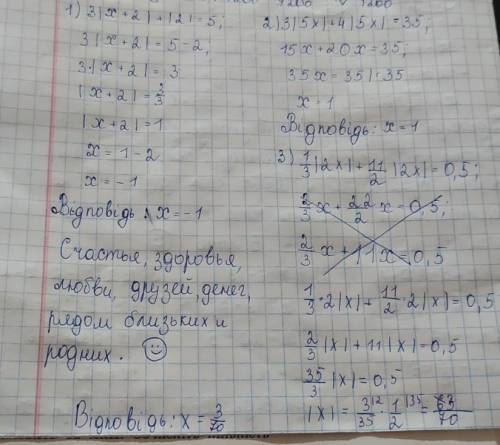 1) 3|x+2|+|2|=5;
3|x+2|=5-2,
3·|x+2|=3
|x+2|=3/3
|x+2|=1
x=1-2
x=-1
Відповідь: x=-1
Счастья, здоровья,
любви, друзей, денег,
рядом близьких и
родних. ☺
2) 3|5x|+4|5x|=35;
15x+20x=35;
35x=35|:35
x=1
Відповідь: x=1
3) 1/3|2x|+11/2|2x|=0,5;
2/3x+22/2x=0,5;
2/3x+11x=0,5
1/3·2|x|+11/2·2|x|=0,5
2/3|x|+11|x|=0,5
35/3|x|=0,5
|x|=3/35·1/2=/70
Відповідь: x=3/70